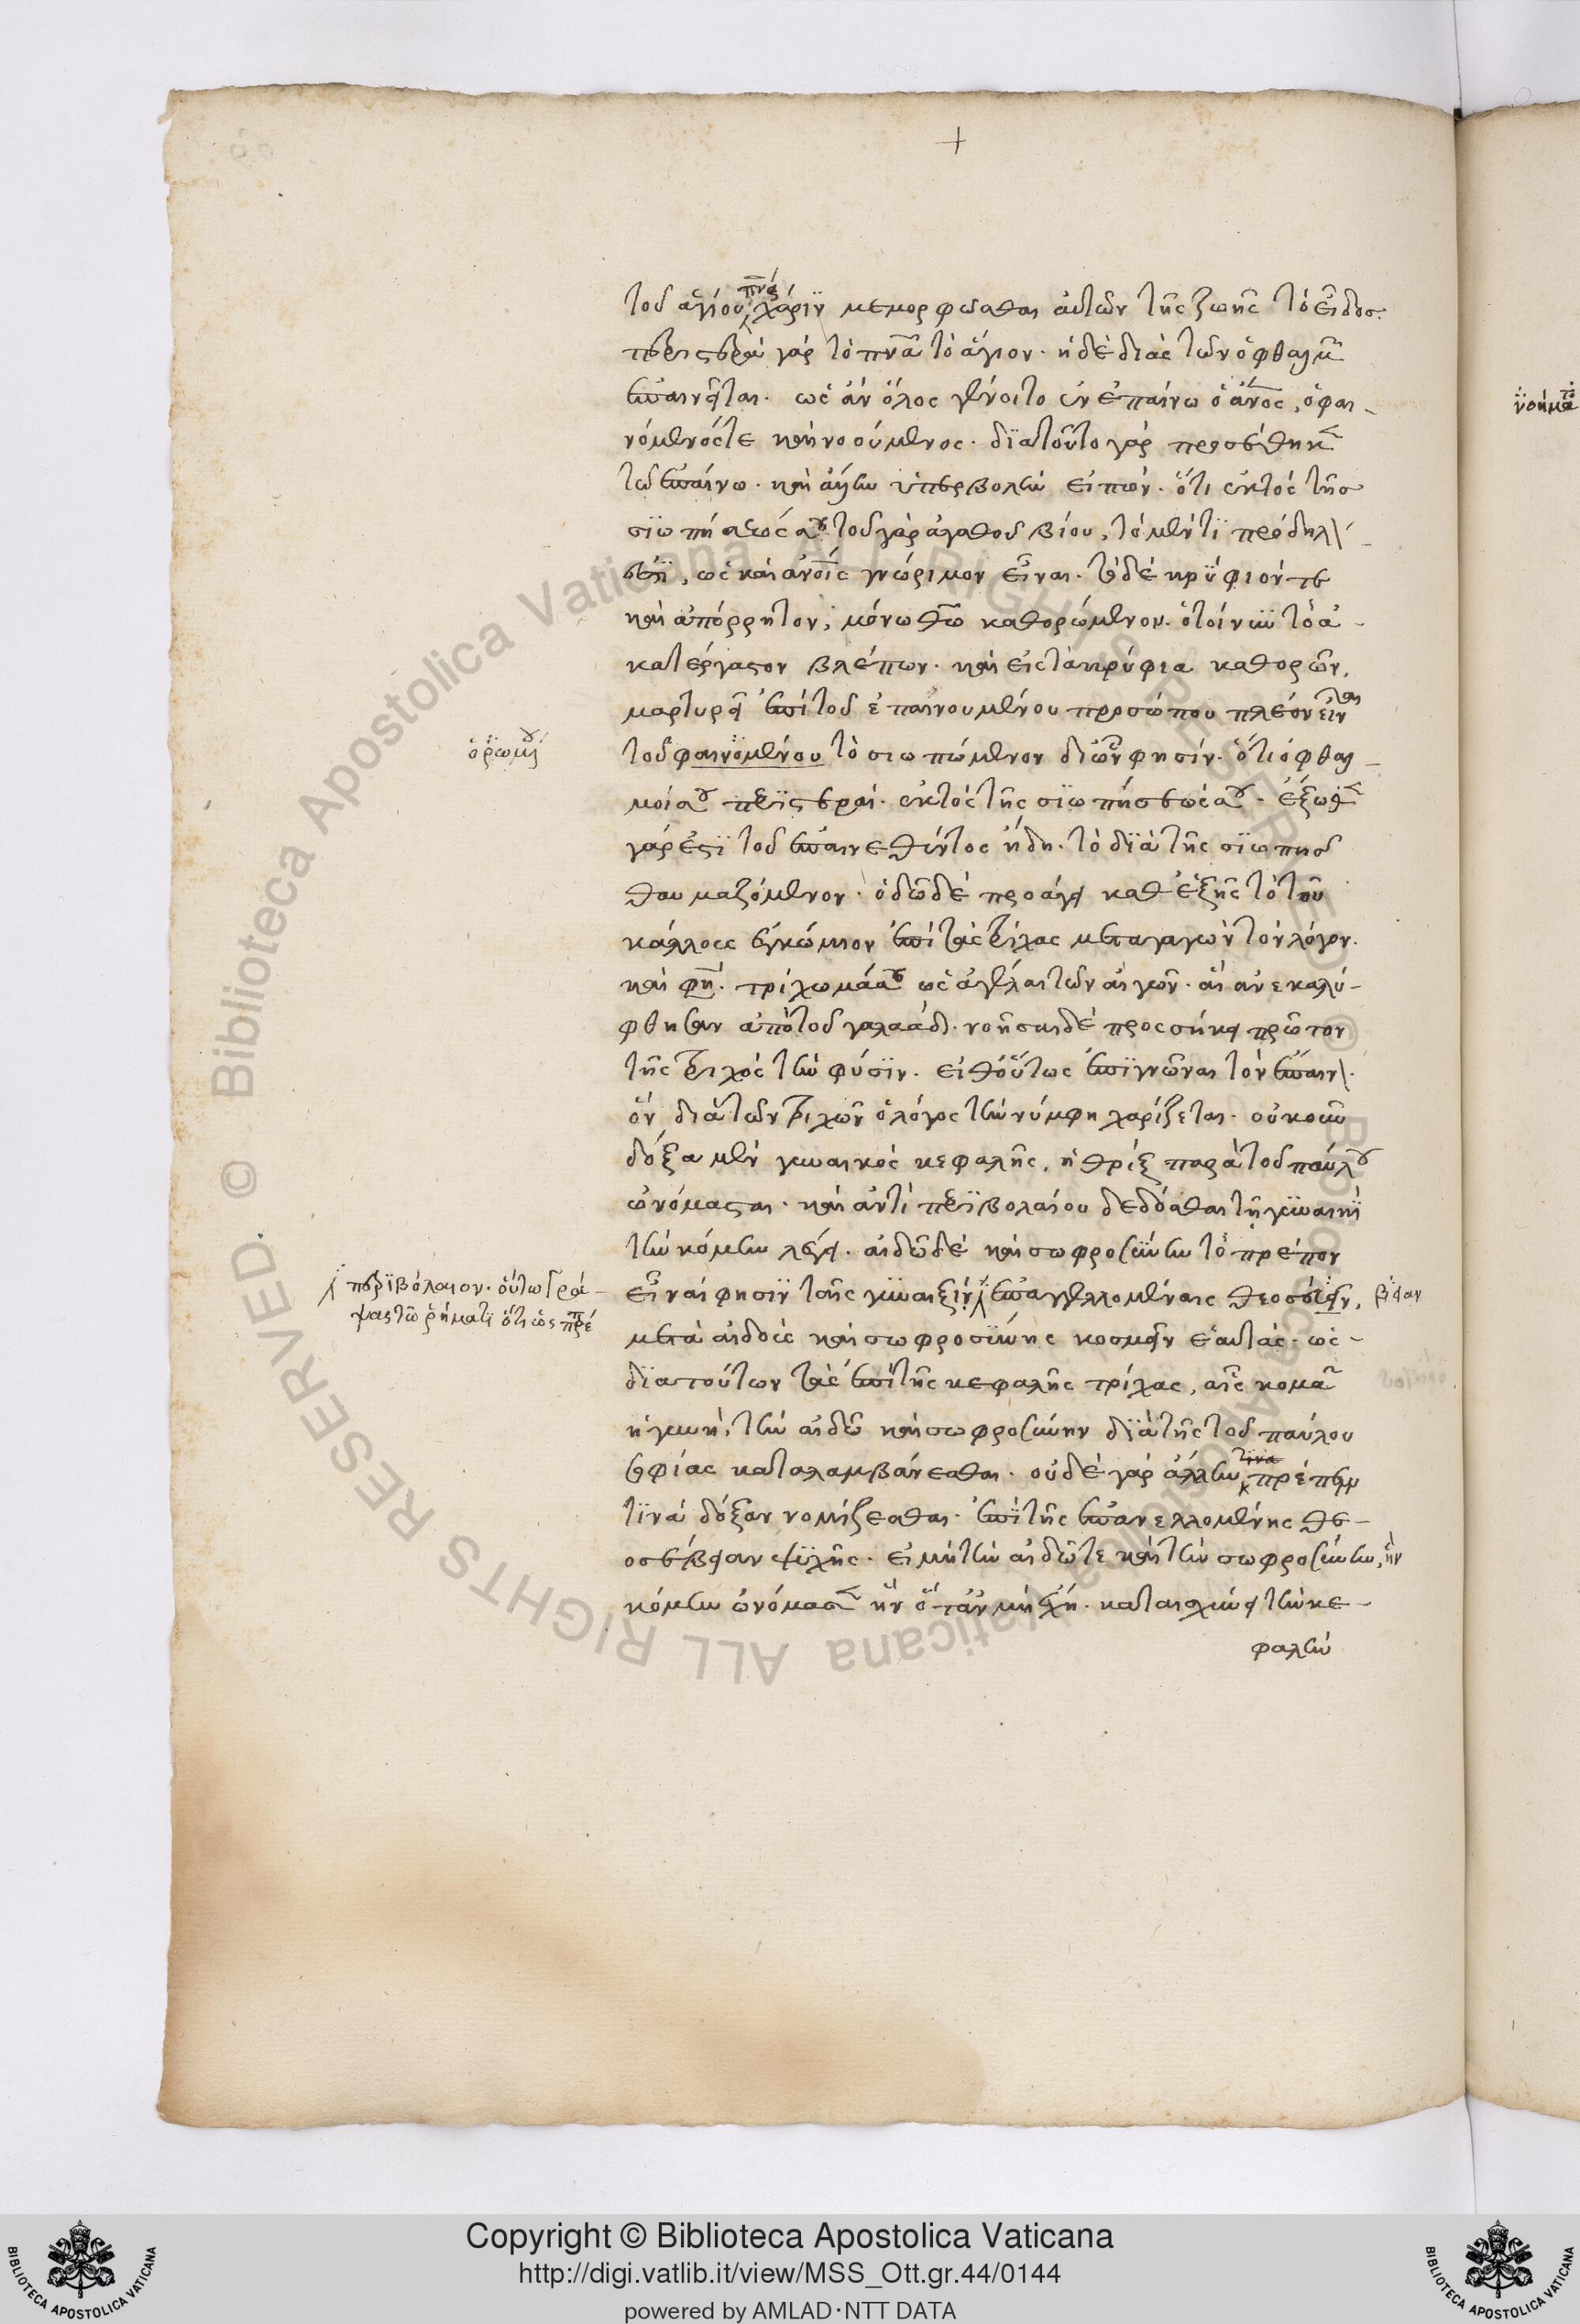 +
τοῦ ἁγίου πνς χάριν μεμορφῶσθαι αὐτῶν τῆς ζωῆς τὸ εἶδος.
περιστερὰ γὰρ τὸ πνα τὸ ἅγιον. ἡ δὲ διὰ τῶν ὀφθαλμ
ἐπαινεῖται. ὡς ἂν ὅλος γένοιτο ἐν ἐπαίνω ὁ ανος, ὁ φαι-
νόμενός τε καὶ νοούμενος. διατοῦτο γὰρ προσέθηκ
τῶ ἐπαίνω. καὶ ὑπερβολὴν εἰπών. ὅτι ἐκτὸς τῆς
σιωπήσεώς σου τοῦ γὰρ ἀγαθοῦ βίου, τὸ μέν τι πρόδηλ
ἐστὶ, ὡς καὶ ανοις γνώριμον εἶναι. τὸ δὲ κρύφιόν τε
καὶ ἀπόρρητον, μόνω θω καθορώμενον. ὁ τοίνυν τὸ ἀ-
κατέργαστον βλέπων. καὶ εἰς τὰ κρύφια καθορῶν,
μαρτυρεῖ ἐπὶ τοῦ ἐπαινουμένου προσώπου πλέον εἶναι
ὁρωμέ
τοῦ φαινομένου τὸ σιωπώμενον δι ὧν φησίν. ὅτι ὀφθαλ-
μοί σου περιστεραί. ἐκτὸς τῆς σιωπήσεώς σου. ἔξωθ
γάρ ἐστι τοῦ ἐπαινεθέντος ἤδη. τὸ διὰ τῆς σιωπῆς
θαυμαζόμενον. ὁδῶ δὲ προάγει καθεξῆς τὸ τοῦ
κάλλους ἐγκώμιον ἐπὶ τὰς τρίχας μεταγαγὼν τὸν λόγον.
καὶ φη. τρίχωμά σου ὡς ἀγέλαι τῶν αἰγῶν. αἳ ἀνεκαλύ-
φθησαν ἀπὸ τοῦ γαλαάδ. νοῆσαι δὲ προσήκει πρῶτον
τῆς τριχὸς τὴν φύσιν. εἶθ οὕτως ἐπιγνῶναι τὸν ἔπαιν.
ὃν διὰ τῶν τριχῶν ὁ λόγος τῇ νύμφη χαρίζεται. οὐκοῦν
δόξα μὲν γυναικὸς κεφαλῆς, ἡ θρὶξ παρὰ τοῦ παύλου
ὠνόμασται. καὶ ἀντὶ περιβολαίου δεδόσθαι τῇ γυναικὶ
τὴν κόμην λέγει. αἰδῶ δὲ καὶ σωφροσύνην τὸ πρέπον
περιβόλαιον. οὕτω γρά-
ψας τῶ ῥήματι ὅτι ὡς πρέ
εἶναί φησιν ταῖς γυναιξίν, ἐπαγγελλομέναις θεοσέβειαν,
μετὰ αἰδοῦς καὶ σωφροσύνης κοσμεῖν ἑαυτάς. ὡς
διατούτων τὰς ἐπὶ τῆς κεφαλῆς τρίχας, αἷς κομᾶ
ἡ γυνὴ, τὴν αἰδῶ καὶ σωφροσύνην διὰ τῆς τοῦ παύλου
σοφίας καταλαμβάνεσθαι. οὐδὲ γὰρ ἄλλην πρέπει
τινὰ δόξαν νομίζεσθαι. ἐπὶ τῆς ἐπανελλομένης θε-
οσέβειαν ψυχῆς. εἰ μὴ τὴν αἰδῶ τε καὶ τὴν σωφροσύνην, ἣν
κόμην ὠνόμασ ἣν ὅταν μὴ ἔχῃ. καταισχύνει τὴν κε-
φαλὴν
Copyright © Biblioteca Apostolica Vaticana
http://digi.vatlib.it/view/MSS_Ott.gr.44/0144
powered by AMLAD·NTT DATA